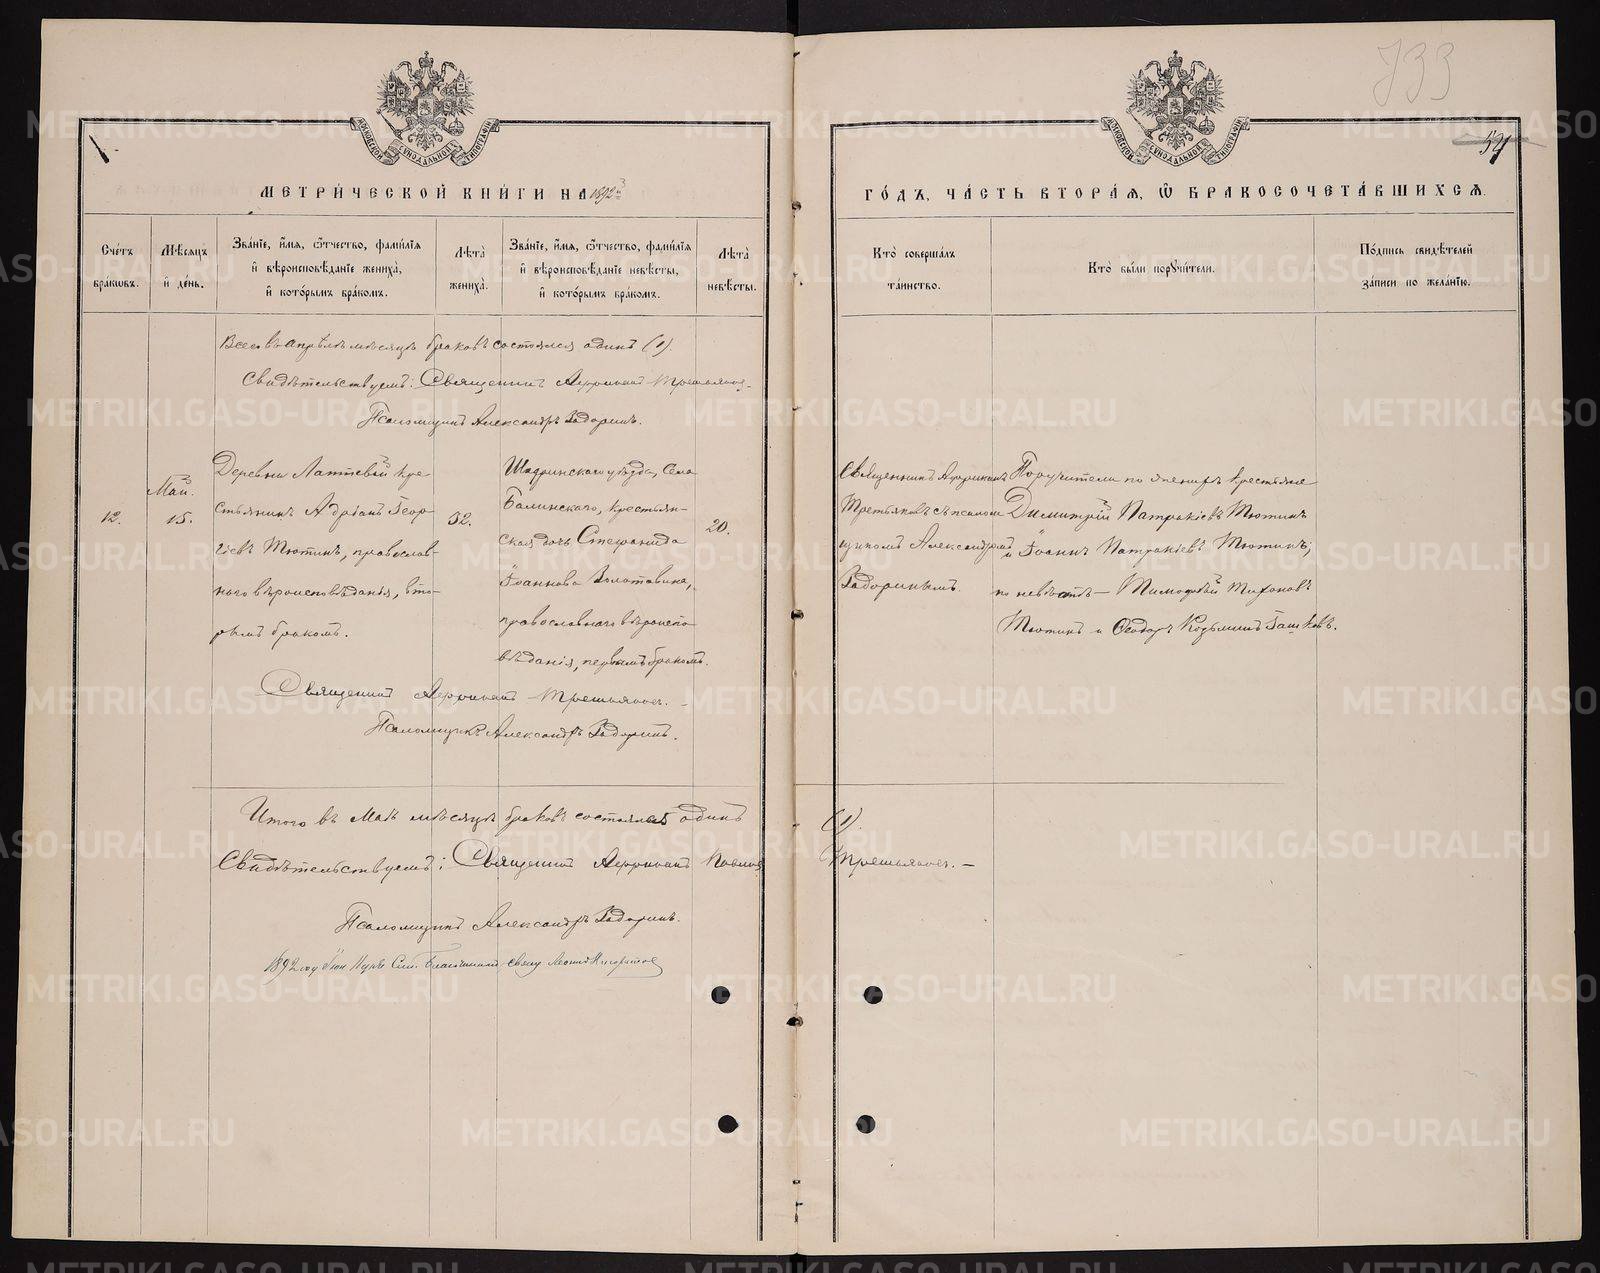 733
54
МОСКОВСКОЙ СѴНОДАЛЬНОЙ ТИПОГРАФІИ
МОСКОВСКОЙ СѴНОДАЛЬНОЙ ТИПОГРАФІИ
МЕТРИ́ЧЕСКОЙ КНИ́ГИ НА 1892й
ГО́ДЪ, ЧА́СТЬ ВТОРА́Я, Ѡ БРАКОСОЧЕТА́ВШИХСЯ.
Сче́тъ бра́кωвъ.
Мѣ́сяцъ и̂ де́нь.
Зва́нїе, и́мя, ѻ҆́тчество, фами́лїя и҆ вѣроисповѣ́данїе жениха̀, и҆ кото́рымъ бра́комъ.
Лѣ́та жениха̀.
Зва́нїе, и́мя, ѻ҆́тчество, фами́лїя и҆ вѣроисповѣ́данїе невѣ́сты, и҆ кото́рымъ бра́комъ.
Лѣ́та невѣ́сты.
Кто̀ соверша́лъ та́инство.
Кто̀ бы́ли порꙋчи́тели.
По́дпись свидѣ́телей за́писи по жела́нїю.
Всего въ Апрѣлѣ мѣсяцѣ браковъ состоялся одинъ (1)
Свидѣтельствуемъ: Священникъ Третьяковъ
Псаломщикъ Александръ Задоринъ.
12.
Май.
15.
Деревни Лаптевой кре-
стьянинъ Адріанъ Геор-
гіевъ Тютинъ, православ-
наго вѣроисповѣданія, вто-
рымъ бракомъ.
32.
Шадринскаго уѣзда, Села
Балинскаго, крестьян-
ская дочь Стефанида
Іоаннова Золотавина,
православнаго вѣроиспо-
вѣданія, первымъ бракомъ.
20.
Священникъ Африканъ
Третьяковъ съ псалом-
щикомъ Александромъ
Задоринымъ.
Поручители по женихѣ крестьяне
Димитрій Патракіевъ Тютинъ
и Іоаннъ Патракіевъ Тютинъ;
по невѣстѣ — Тимофей Тихоновъ
Тютинъ и Ѳеодоръ Козьминъ Гашковъ.
Священникъ Африканъ Третьяковъ.
Псаломщикъ Александръ Задоринъ.
Итого въ Маѣ мѣсяцѣ браковъ состоялся одинъ (1).
Свидѣтельствуемъ: Священникъ Африканъ Павловъ Третьяковъ. —
Псаломщикъ Александръ Задоринъ.
1892 году
METRIKI.GASO-URAL.RU